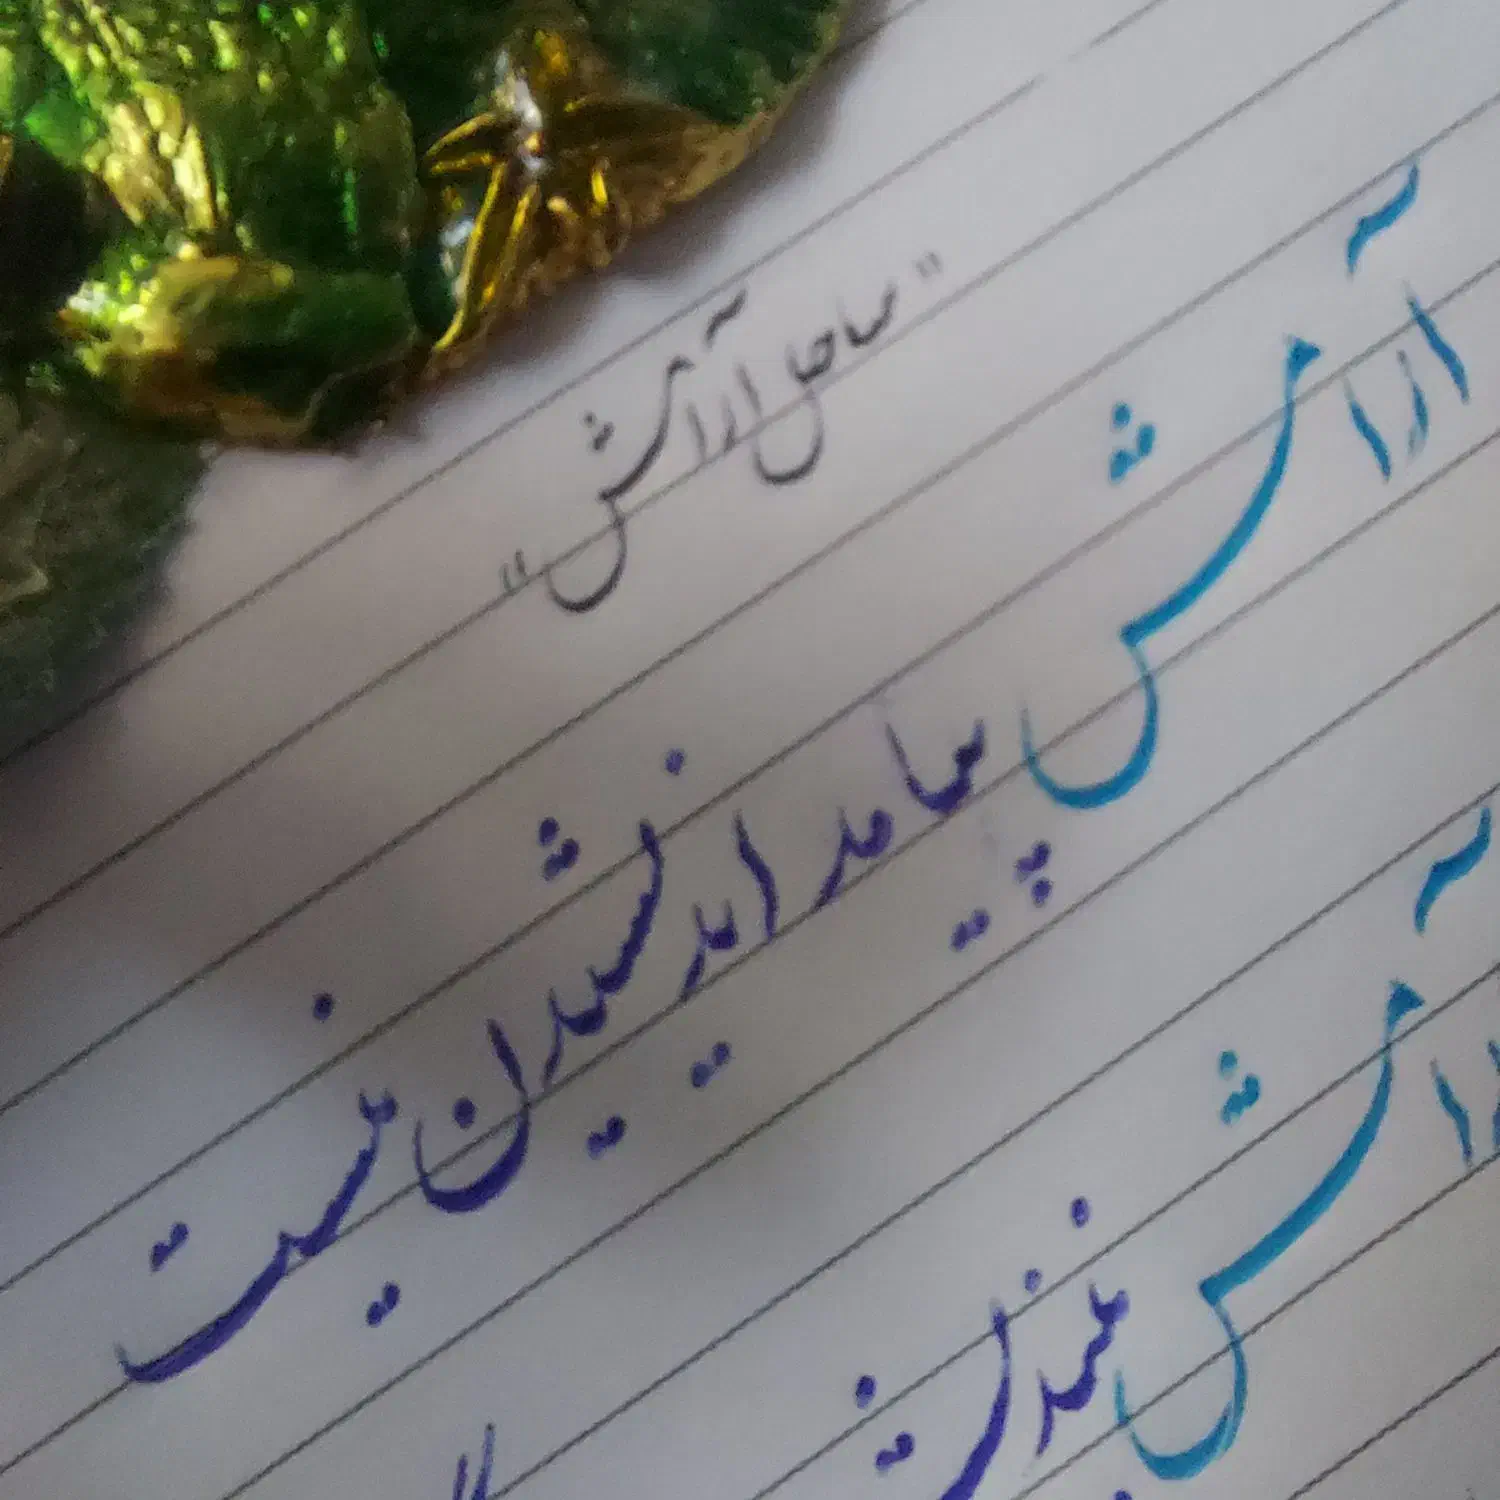 "ساحل آرامش"
آرامش پیامد اندیشیدن نیست
آرامش هنر